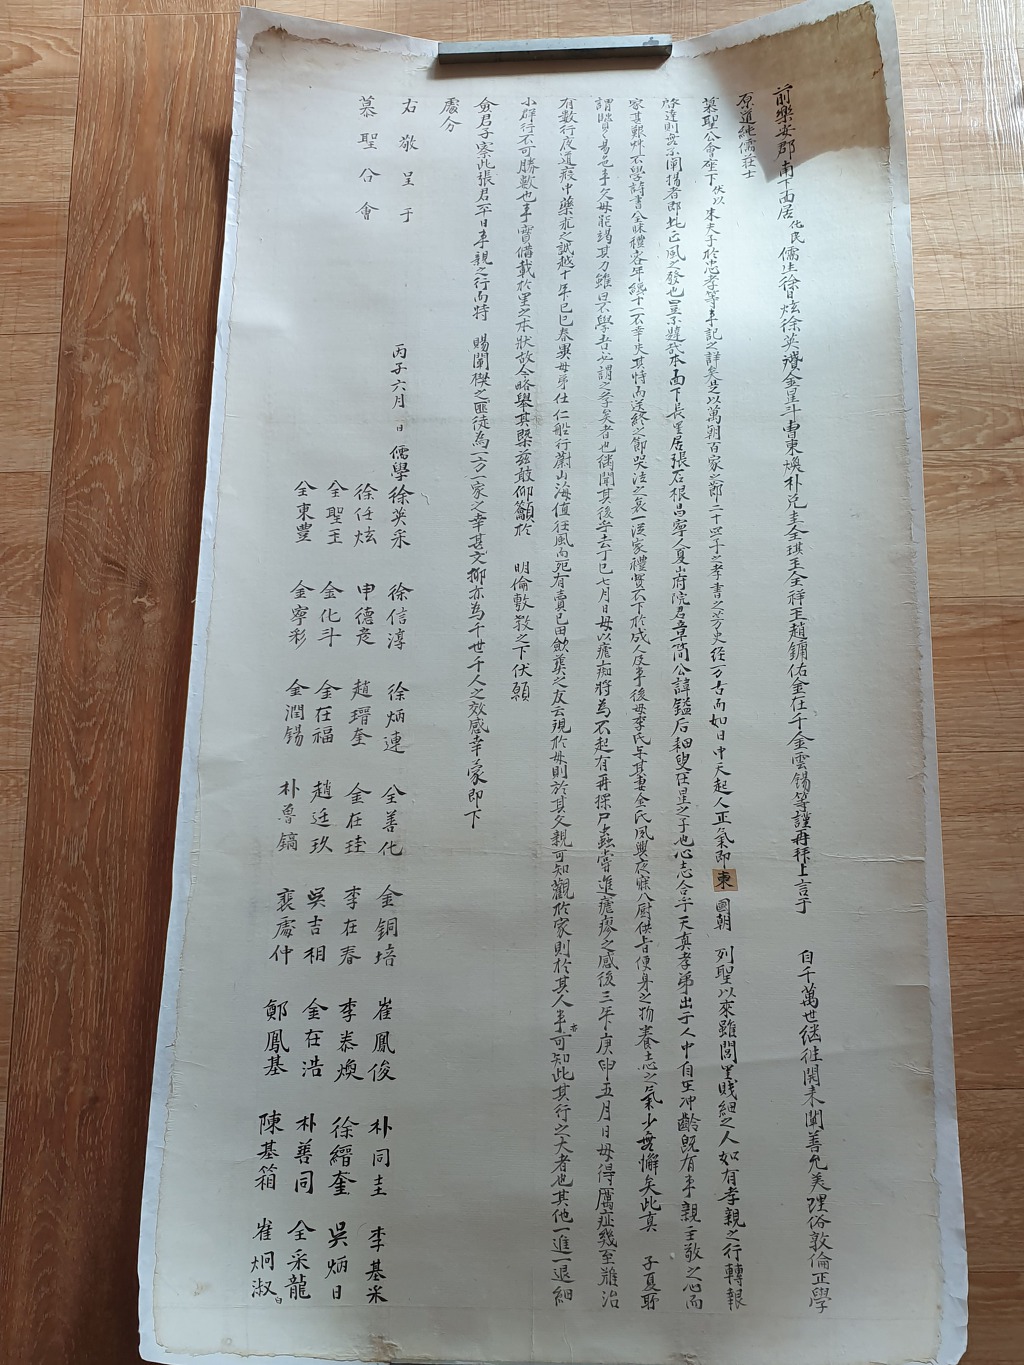 前樂安郡南下面居化民儒生徐日炫徐英瓚金星斗曹東煥朴兄圭全琪玉全祥玉趙鏞佑金在千金雲錫等謹再拜上言于 自千萬世継徃開来闡善允美理俗敦倫正學
原道純儒莊士
慕聖公會座下伏以朱夫子於忠孝等事記之詳矣是以萬朔百家之郷二十四子之孝書之芳史経万古而如日中天起人正氣即東國朝 列聖以來雖閭里賤細之人如有孝親之行轉報
啓達則無不闡揚者都此正風之發也豈不韙哉本面下長里居張石根昌寧人夏山府院君章簡公諱鎰后裔叟在星之子也心志合乎天真孝弟出于人中自至冲齡既有事親主敬之心而
家甚艱艸不學詩書全昧禮容年纔十一不幸失其恃而送終之節哭泣之哀一從家禮實不下於成人及事後母李氏與其妻金氏夙興夜寐入厨供旨便身之物養志之氣少無懈矣此真 子夏所
謂賢賢易色事父母能竭其力雖曰不學吾必謂之學矣者也偶聞其後乎去丁巳七月日母以瘧痴將為不起有再探尸蟲嘗進瘧瘳之感後三年庚申五月日母得厲症幾至難治
有數行夜道疲中藥求之誠越十年己巳春異母弟仕仁船行蔚山海值狂風而死有賣已田飲奠之友云現於母則於其父親可知觀於家則於其人事亦可知此其行之大者也其他一進一退細
小羣行不可勝數也事實備載於里之本狀故今略舉其槩茲敢仰籲於 明倫敷敎之下伏願
僉君子察此張君平日事親之行而特 賜闡襮之匪徒為一方一家之幸甚文抑亦為千世千人之效感幸蒙即下
處分
右敬呈于
慕聖公會
丙子六月 日 儒學徐英采 徐信淳 徐炳連 全善化 金銅培 崔鳳俊 朴同圭 李基采
徐任炫 申德彦 趙瑨奎 金在珪 李在春 李泰煥 徐縉奎 吳炳日
全聖玉 金化斗 金在福 趙廷玖 吳吉相 金在浩 朴善同 全采龍
全東豊 金寧彩 金潤錫 朴魯鎬 裵處仲 鄭鳳基 陳基箱 崔炯淑